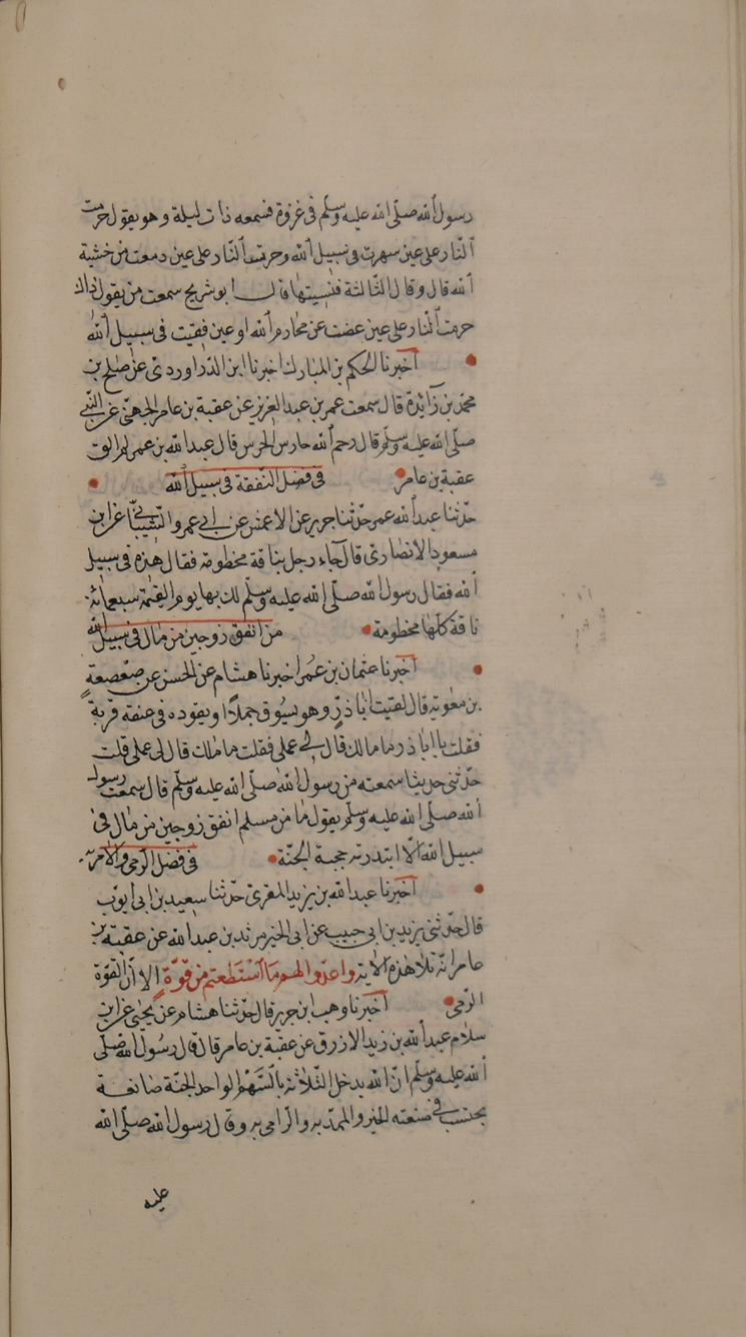 رسول الله صلى الله عليه وسلم في غزوة فسمعه ذات ليلة وهو يقول حرمت
النار على عين سهرت في سبيل الله وحرمت النار على عين دمعت من خشية
الله قال وقال الثالثة فنسيتها قال ابو شريح سمعت من يقول ذاك
حرمت النار على عين غضت عن محارم الله او عين فقيت في سبيل الله
اخبرنا الحكم بن المبارك اخبرنا ابن الدراوردي عن صالح بن
محمد بن زائدة قال سمعت عمر بن عبد العزيز عن عقبة بن عامر الجهني عن النبي
صلى الله عليه وسلم قال رحم الله حارس الحرس قال عبد الله بن عمر لم الق
عقبة بن عامر في فضل النفقة في سبيل الله
حدثنا عبد الله عمر حدثنا جرير عن الاعمش عن ابي عمرو الشيباني عن ابن
مسعود الانصاري قال جاء رجل بناقة مخطومة فقال هذه في سبيل
الله فقال رسول الله صلى الله عليه وسلم لك بها يوم القيمة سبعمائة
ناقة كلها مخطومة من انفق زوجين من مال في سبيل الله
اخبرنا عثمان بن عمر اخبرنا هشام عن الحسن عن صعصعة
بن معوية قال لقيت ابا ذر وهو يسوق جملا او يقوده في عنقه قربة
فقلت يا ابا ذر ما مالك قال لي عملي فقلت ما مالك قال لي عملي قلت
حدثني حديثا سمعته من رسول الله صلى الله عليه وسلم قال سمعت رسول
الله صلى الله عليه وسلم يقول ما من مسلم انفق زوجين من مال في
سبيل الله الا ابتدرته حجبة الجنة في فضل الرمي والامر به
اخبرنا عبد الله بن يزيد المقري حدثنا سعيد بن ابي ايوب
قال حدثني يزيد بن ابي حبيب عن ابي الخير مرثد بن عبد الله عن عقبة بن
عامر انه تلا هذه الاية واعدوا لهم ما استطعتم من قوة الا ان القوة
الرمي اخبرنا وهب ابن جرير قال حدثنا هشام عن يحيى عن ابن
سلام عبد الله بن زيد الازرق عن عقبة بن عامر قال قال رسول الله صلى
الله عليه وسلم ان الله يدخل الثلاثة بالسهم الواحد الجنة صانعه
يحتسب في صنعته الخير والممد به والرامي به وقال رسول الله صلى الله
عليه